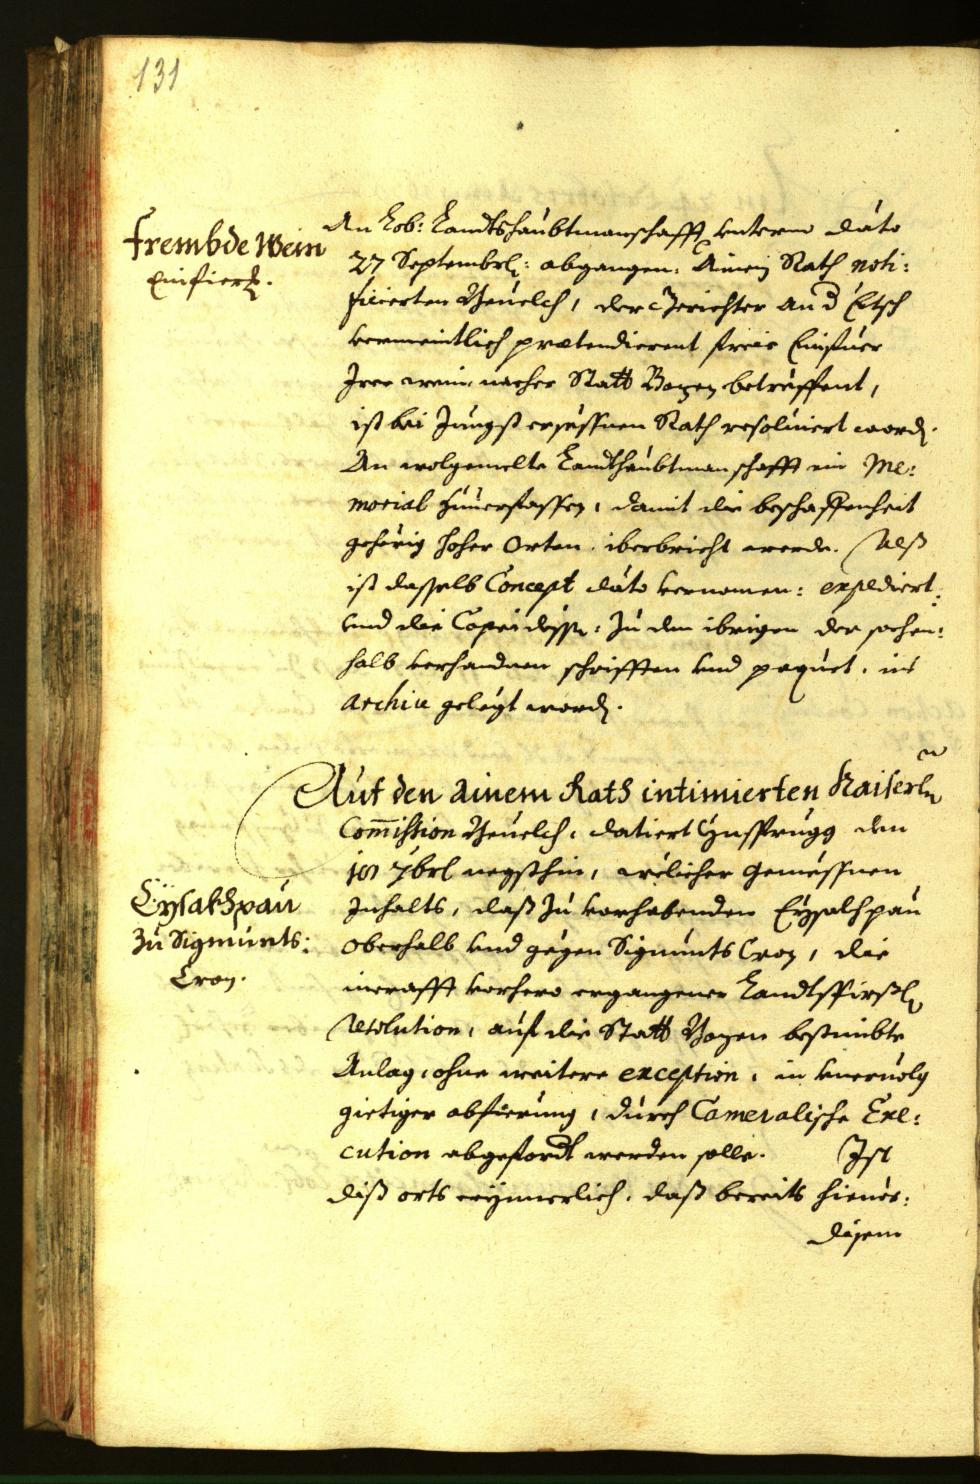 131
Frembde Wein
Einfierh.
An Lob: Landtshaubtmanschafft unterm dato
27 Septembrl: abgangen. Ainem Rath noti:
ficierten Beuelch, der Gerichter an d Etsch
vermeintlich prætendierent freie Einfuer
Irer wein nacher Statt Bozen betreffent,
ist bei Jungst ersessnen Rath resoluiert word.
An wolgemelte Landthaubtmanschafft ein Me:
morial zuuerfassen, damit die beschaffenheit
gehörig hoher Orten iberbricht werde. Alss
ist dasselb Concept dato vernomen: expediert:
und die Copei dessn: zu den ibrigen der sachen:
halb verhandnen schrifften und paquet. ins
Archiu gelegt word.
Auf den ainem Rath intimierten Kaiserln
Com̄ission Beuelch, datiert Ynssprugg den
7brl negsthin, welicher gemessnen
Eysakhpau
zu Sigmunts:
Cron.
Inhalts, dass zu vorhabenden Eysakhpau
oberhalb und gegen Sigmunts Cron, die
incrafft vorhero ergangener Landtsfirstl
Resolution, auf die Statt Bozen bestimbte
Anlag, ohne weitere exception, in
gietiger abfierung, durch Cameralische Exe:
cution abgefordt werden solle. Ist
diss orts erynnerlich, dass bereits hieuor:
disem